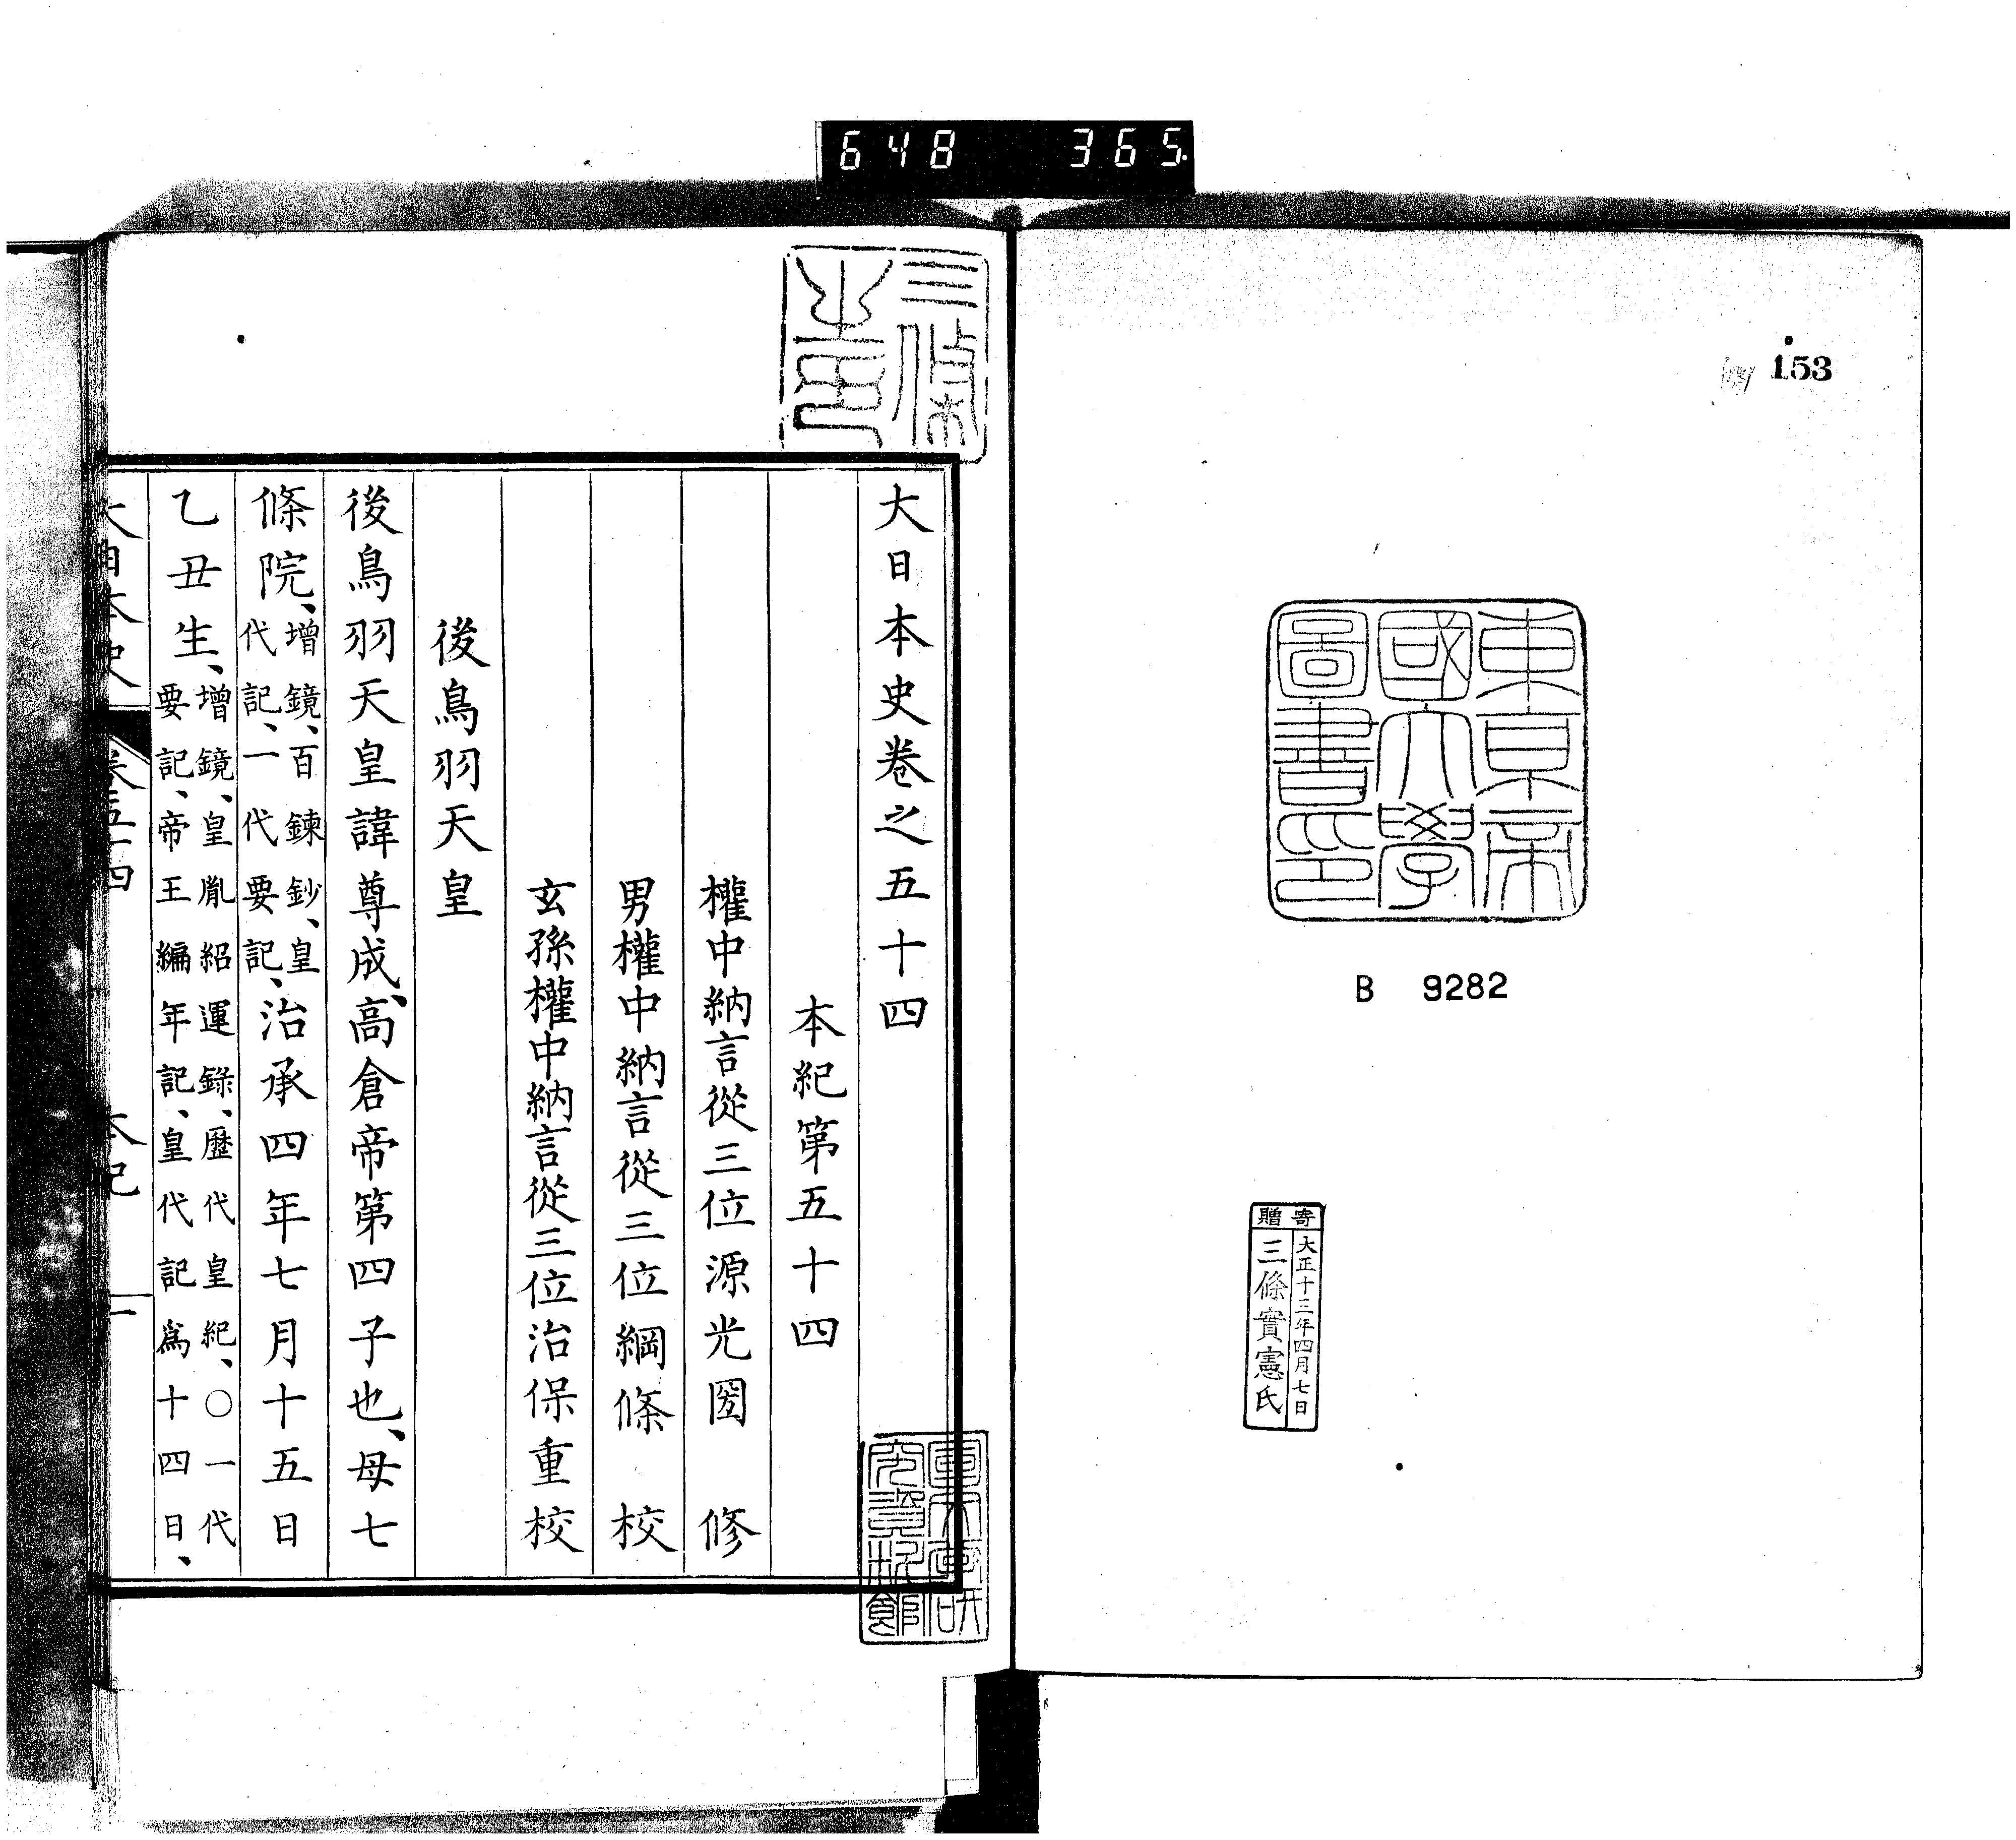 648 365
153
東京帝
國大學
圖書印
B 9282
寄贈
大正十三年四月七日
三條實憲氏
三條
大日本史卷之五十四
本紀第五十四
權中納言從三位源光圀 修
男權中納言從三位綱條 校
玄孫權中納言從三位治保重校
後鳥羽天皇
後鳥羽天皇諱尊成、高倉帝第四子也、母七
條院、增鏡、百鍊鈔、皇代記、一代要記、治承四年七月十五日
乙丑生、增鏡、皇胤紹運錄、歷代皇紀、〇一代要記、帝王編年記、皇代記爲十四日、
大日本史 卷五十四 本紀 一